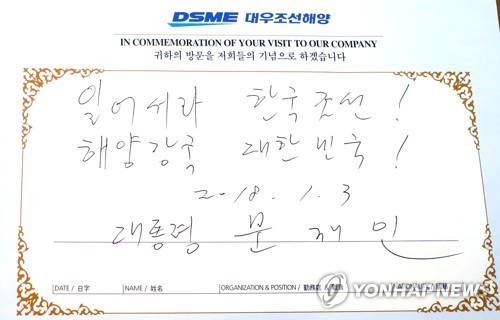 DSME 대우조선해양
IN COMMEMORATION OF YOUR VISIT TO OUR COMPANY
귀하의 방문을 저희들의 기념으로 하겠습니다
일어서라 한국조선!
해양강국 대한민국!
2018. 1. 3
대통령 문재인
DATE / 日字 NAME / 姓名 ORGANIZATION & POSITION / NATION
YONHAP NEWS